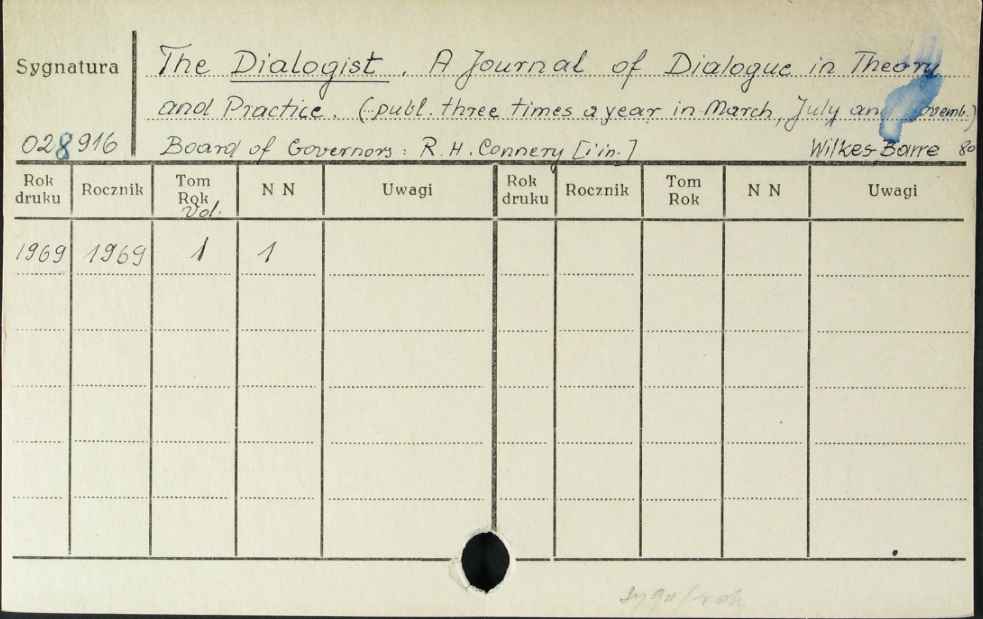 Sygnatura
The Dialogist. A Journal of Dialogue in Theory
and Practice. (publ. three times a year in March, July and Novemb.)
028916
Board of Governors: R. H. Connery [i in.]
Wilkes-Barre 80
Rok druku Rocznik Tom Rok Vol. N N Uwagi Rok druku Rocznik Tom Rok N N Uwagi
1969 1969 1 1